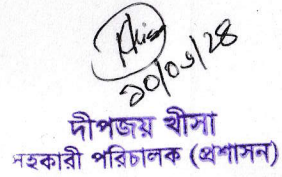 ২০/০৬/২৪
দীপজয় খীসা
সহকারী পরিচালক (প্রশাসন)